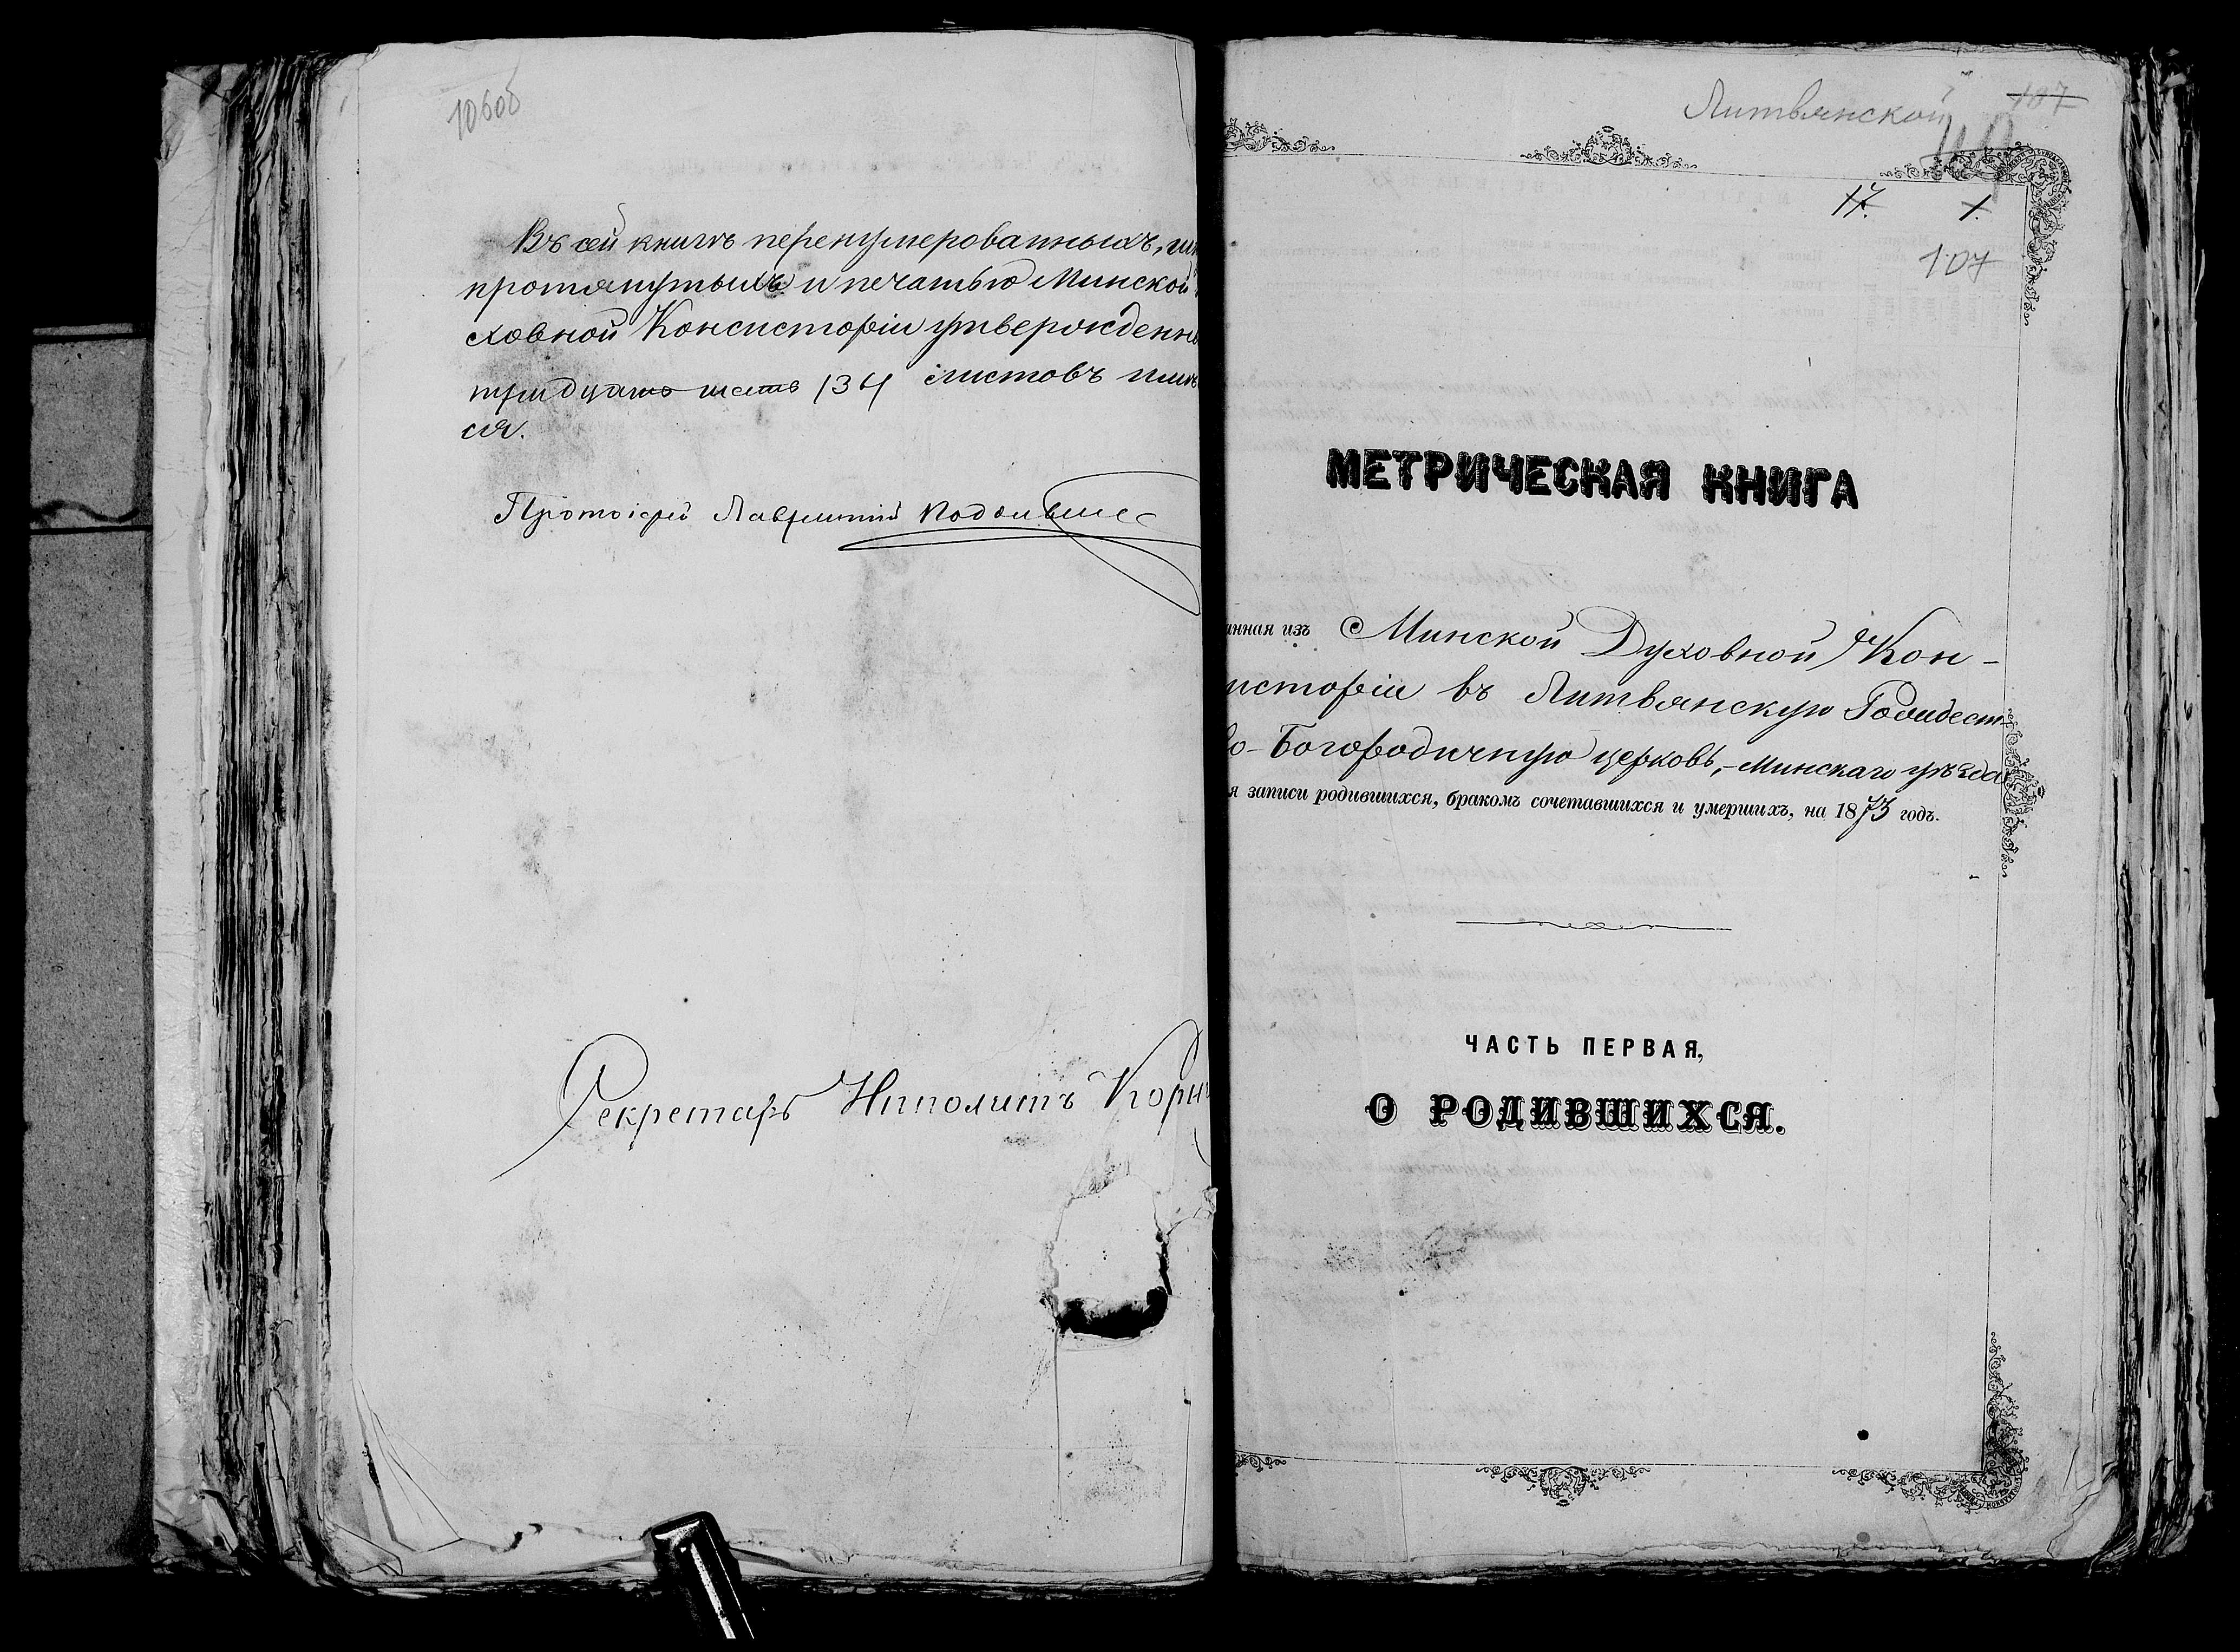 106об
Въ сей книгѣ перенумерованныхъ,
протянутыхъ и печатью Минской
ховной Консисторіи утвержденны
тридцать шесть /36/ листовъ
ся.
Протоіерей Лаврентій
Секретарь Ипполитъ
Литвянской
107
17. 1.
107
МЕТРИЧЕСКАЯ КНИГА
анная изъ Минской Духовной Кон-
исторіи въ Литвянскую Рождест
во-Богородичную церковь, Минскаго уѣзда
я записи родившихся, бракомъ сочетавшихся и умершихъ, на 1873 годъ.
ЧАСТЬ ПЕРВАЯ,
О РОДИВШИХСЯ.